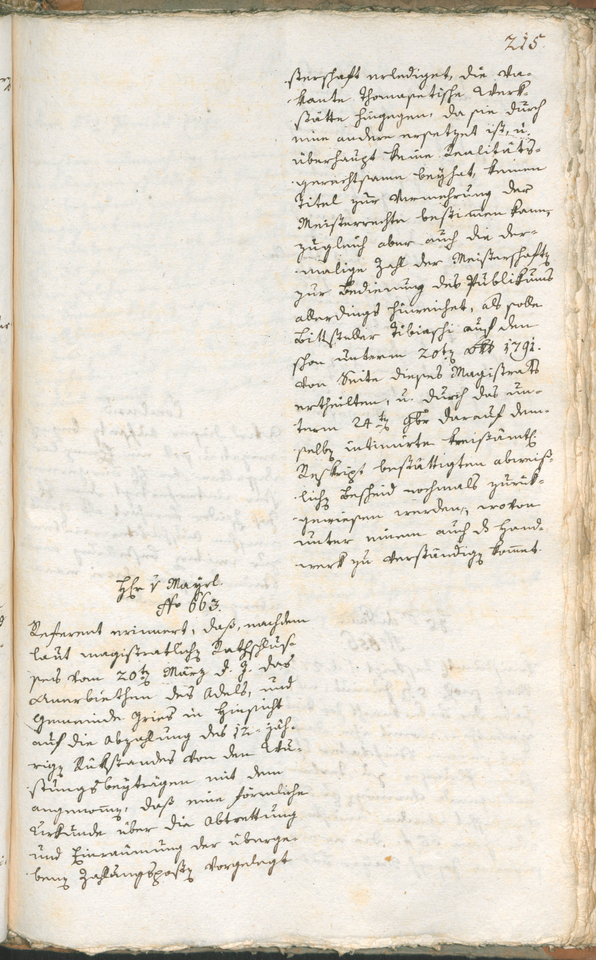 215.
sterschaft erlediget, die va-
kante Thomasetische Werk-
stätte hingegen, da sie durch
eine andere ersetzet ist, u.
überhaupt keine Realitäts-
gerechtsame beÿhat, keinen
Titel zur Vermehrung der
Meisterrechte bestimen kann,
zugleich aber auch die der-
malige Zahl der Meisterschaft
zur Bedienung des Publikums
allerdings hinreichet, als solle
Bittsteller Tibiaschi auf den
schon unterm 20tn 8br 1791.
von Seite dieses Magistrats
ertheilten, u. durch das un-
term 24tn 9br darauf dem-
selbn intimirte kreisämtl.
Reskript bestättigten abweiß-
lichn Bescheid nochmals zurük-
gewiesen werden, wovon
unter einem auch das Hand-
werk zu verständign kommt.
Hr v Maÿrl.
No 663.
Referent erinnert, daß, nachdem
laut magistratlichn Rathschlus-
ses vom 20tn März d. J. das
Anerbiethen des Adels, und
Gemeinde Gries in Hinsicht
auf die Abzahlung des 12-jäh-
rign Rükstandes von den Wu-
stungsbeÿträgen mit dem
angenommen, daß eine förmliche
Urkunde über die Abtrettung
und Einraumung der überge-
benn Zahlungspostn vorgelegt